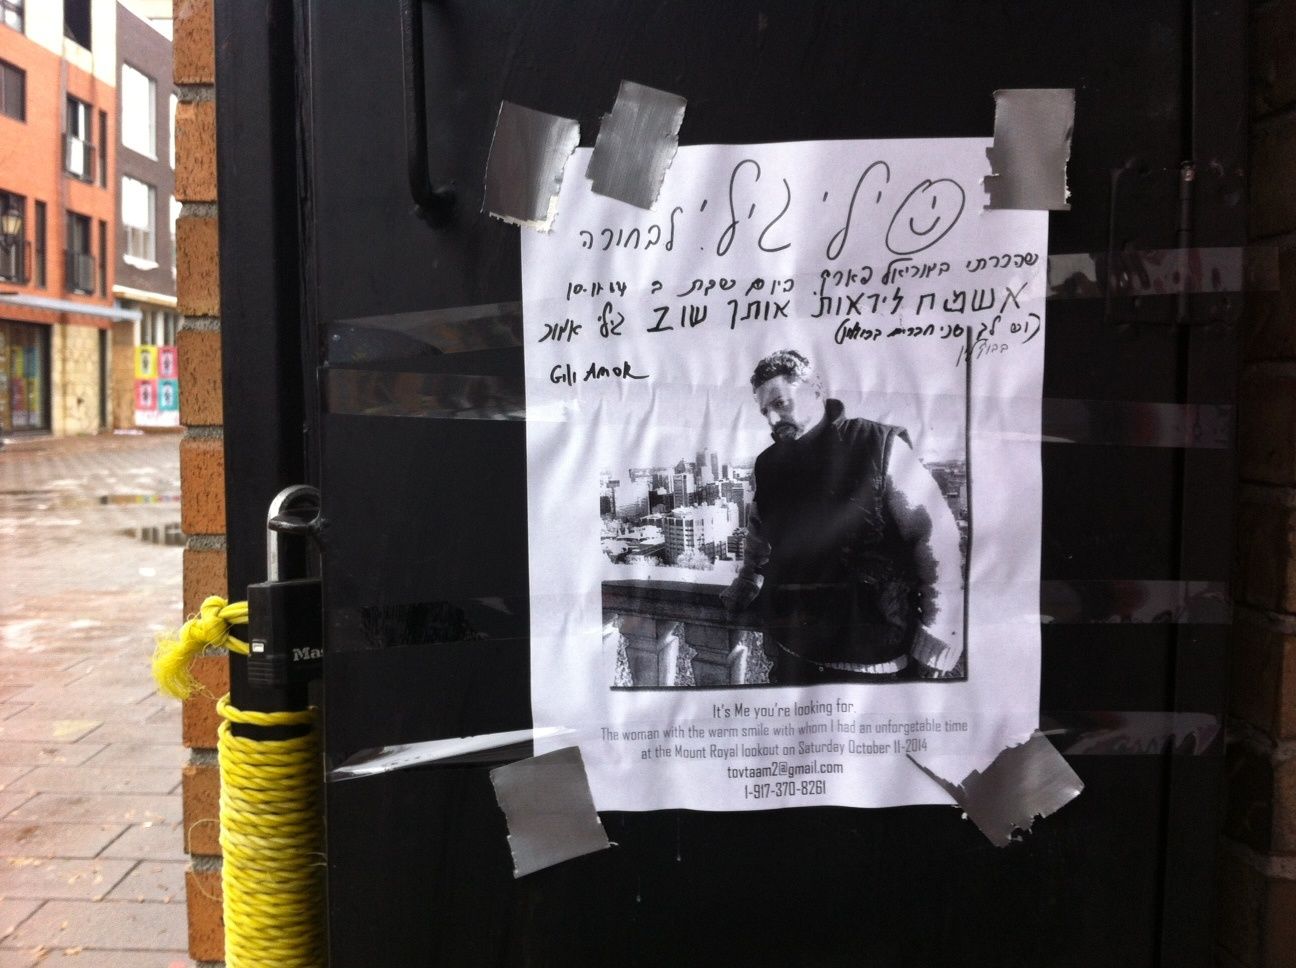 לי גילי. לבחורה
שהכרתי במונריאל פארק. היום שבת ב 10.11.14
אשמח לראות אותך שוב גילי אמוק
חברים
Gili Amok
It's Me you're looking for.
The woman with the warm smile with whom I had an unforgetable time
at the Mount Royal lookout on Saturday October 11-2014
tovtaam2@gmail.com
1-917-370-8261